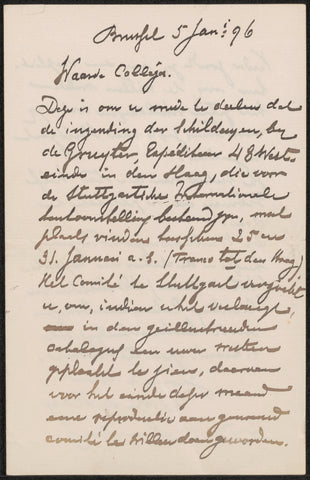 Brussel 5 Jan: 96
Waarde Collega.
Deze is om u mede te deelen dat
de inzending der schilderijen, bij
de Gruyter, Expediteur 48 West-
einde in den Haag, die voor
de Stuttgartsche Internationale
tentoonstelling bestemd zijn, moet
plaats vinden tusschen 25 en
31 Januari a. s. (Franco tot den Haag)
Het Comité te Stuttgart verzoekt
u, om, indien u het verlangt,
in den geïllustreerden
catalogus een uwer werken
geplaatst te zien, daarvan
voor het einde dezer maand
eene reproductie aan genoemd
comité te willen doen geworden.